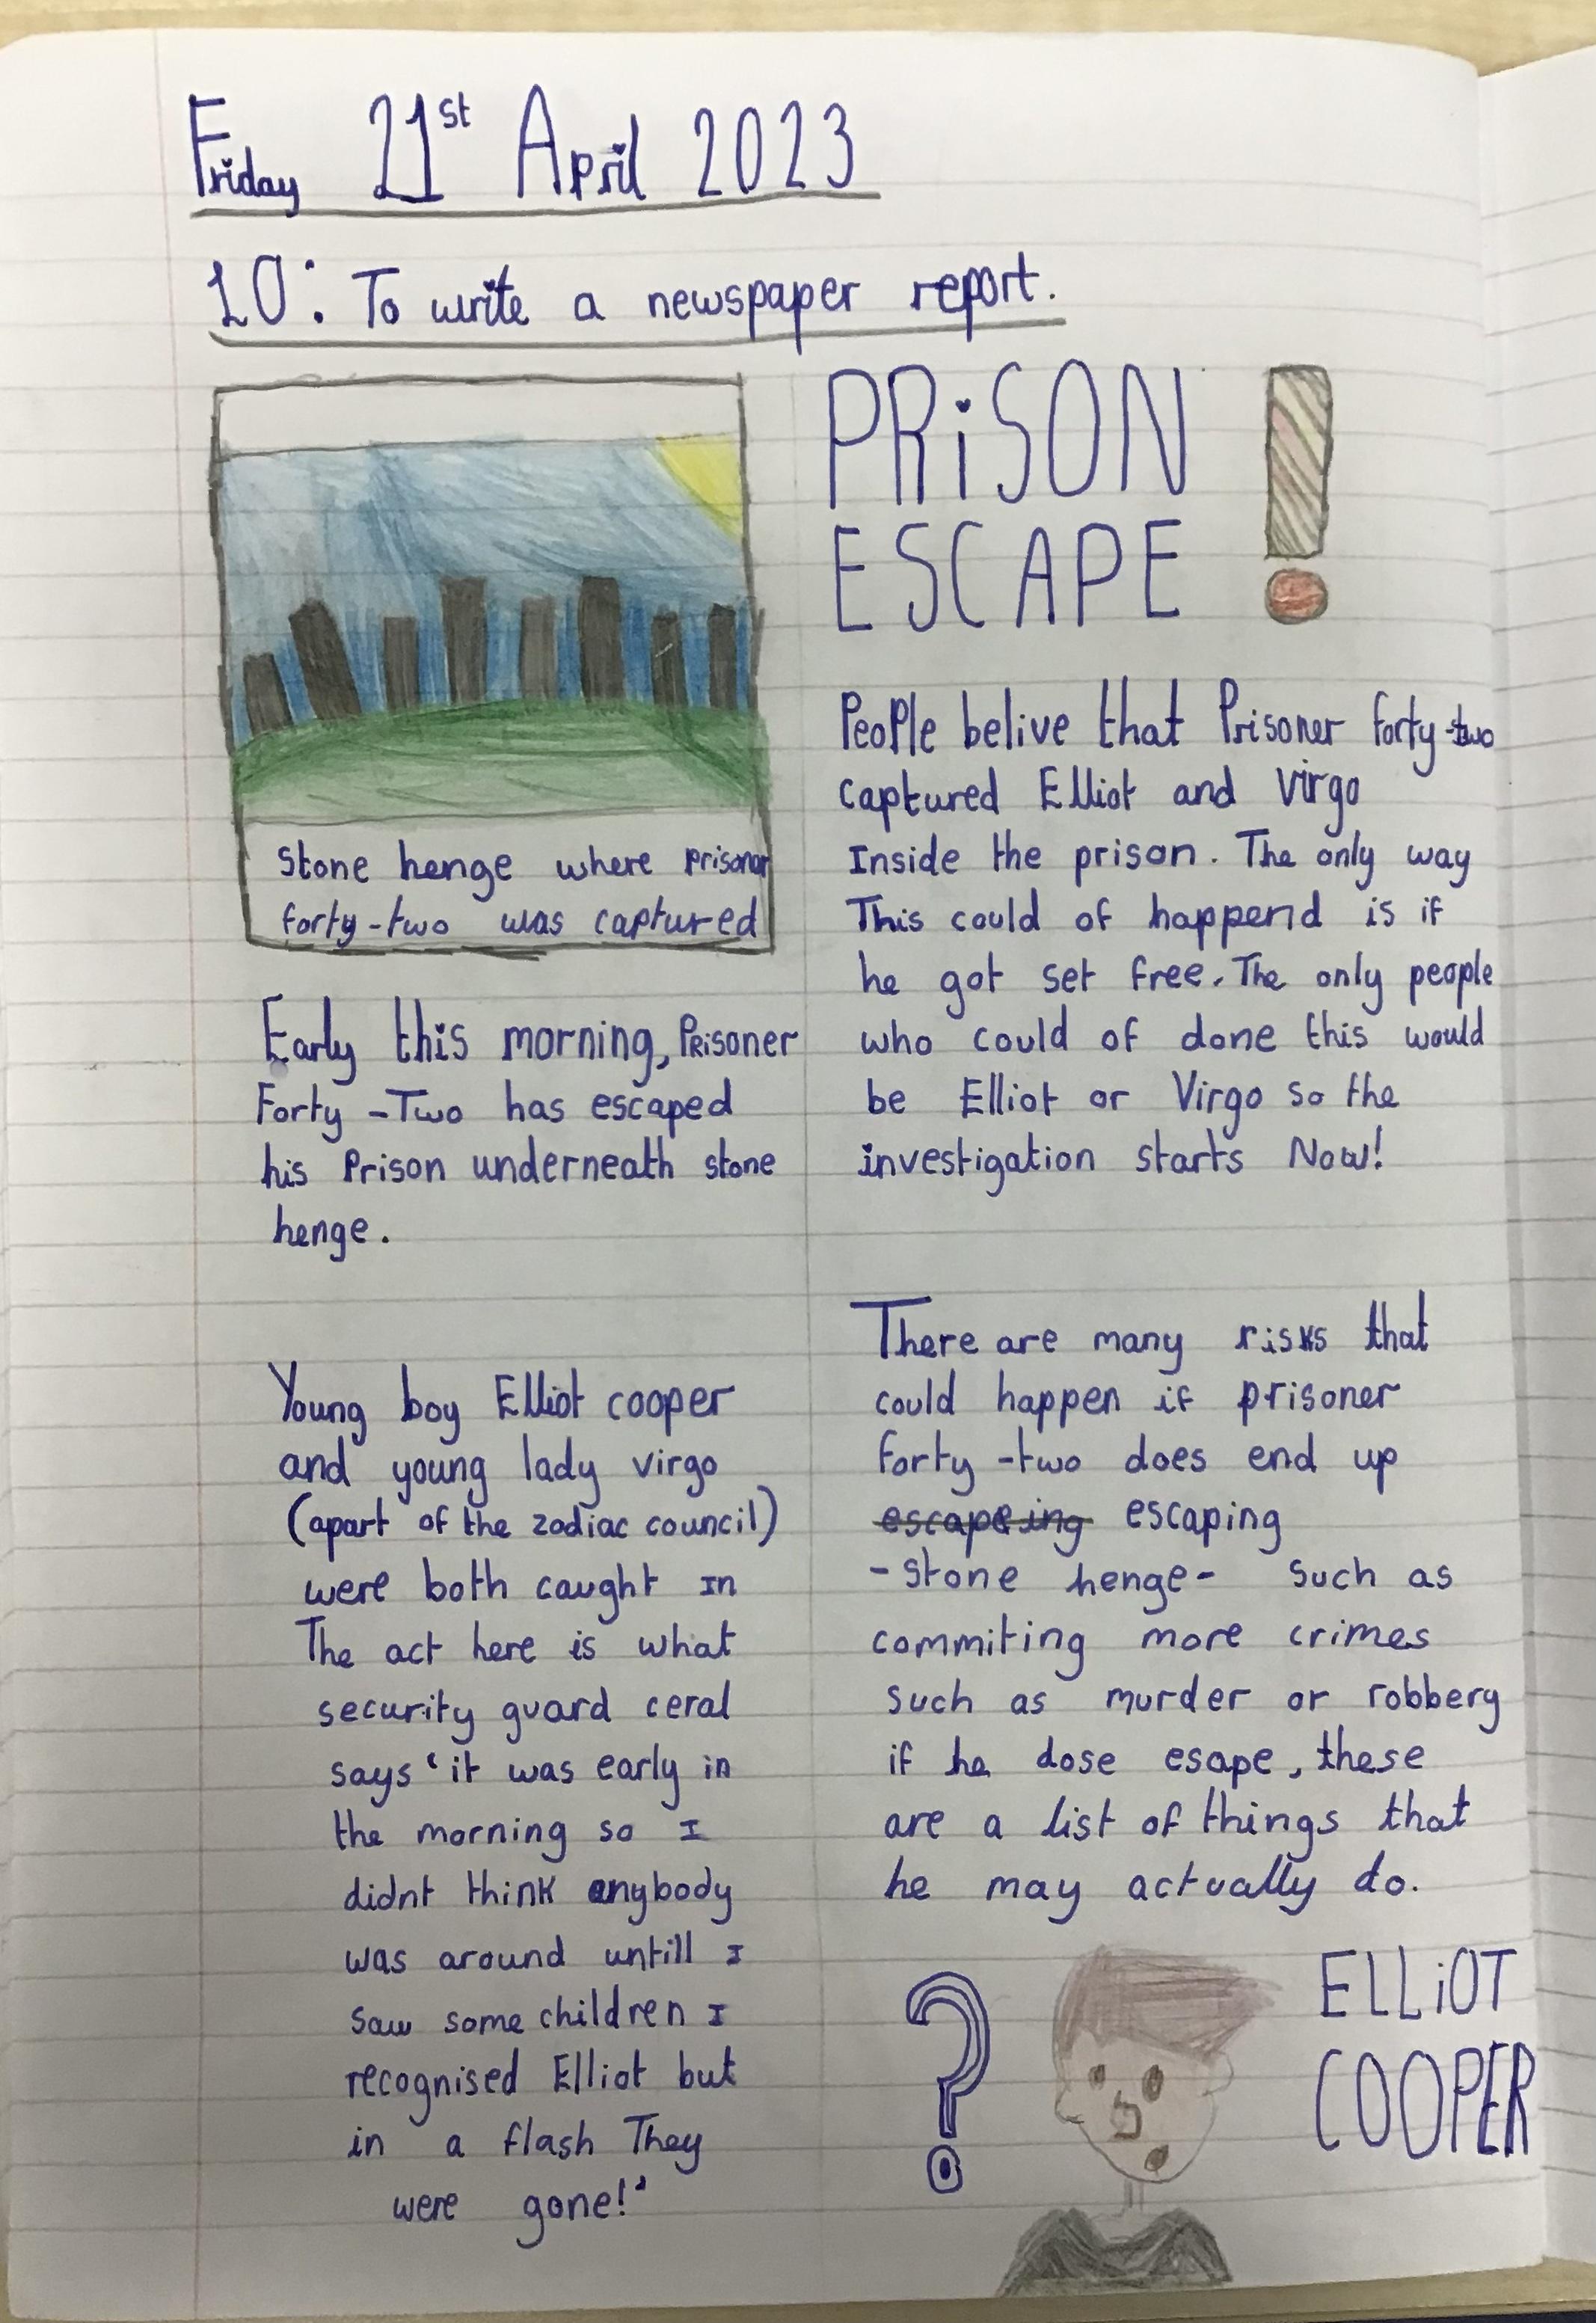 Friday 21st April 2023
LO: To write a newspaper report.
PRiSON
ESCAPE!
Stone henge where prisoner
forty-two was captured
Early this morning, Prisoner
Forty-Two has escaped
his Prison underneath stone
henge.
Young boy Elliot cooper
and young lady virgo
(apart of the zodiac council)
were both caught In
The act here is what
security guard ceral
says ‘it was early in
the morning so I
didnt think anybody
was around untill I
saw some children I
recognised Elliot but
in a flash They
were gone!’
People belive that Prisoner forty-two
captured Elliot and Virgo
Inside the prison. The only way
This could of happend is if
he got set free. The only people
who could of done this would
be Elliot or Virgo so the
investigation starts Now!
There are many risks that
could happen if prisoner
forty-two does end up
escapeing escaping
-stone henge- such as
commiting more crimes
such as murder or robbery
if he dose esape, these
are a list of things that
he may actually do.
?
ELLiOT
COOPER